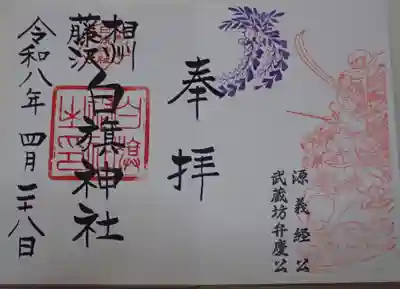 源義経公
武蔵坊弁慶公
奉拝
相州
藤沢
白旗神社
令和八年四月二十八日